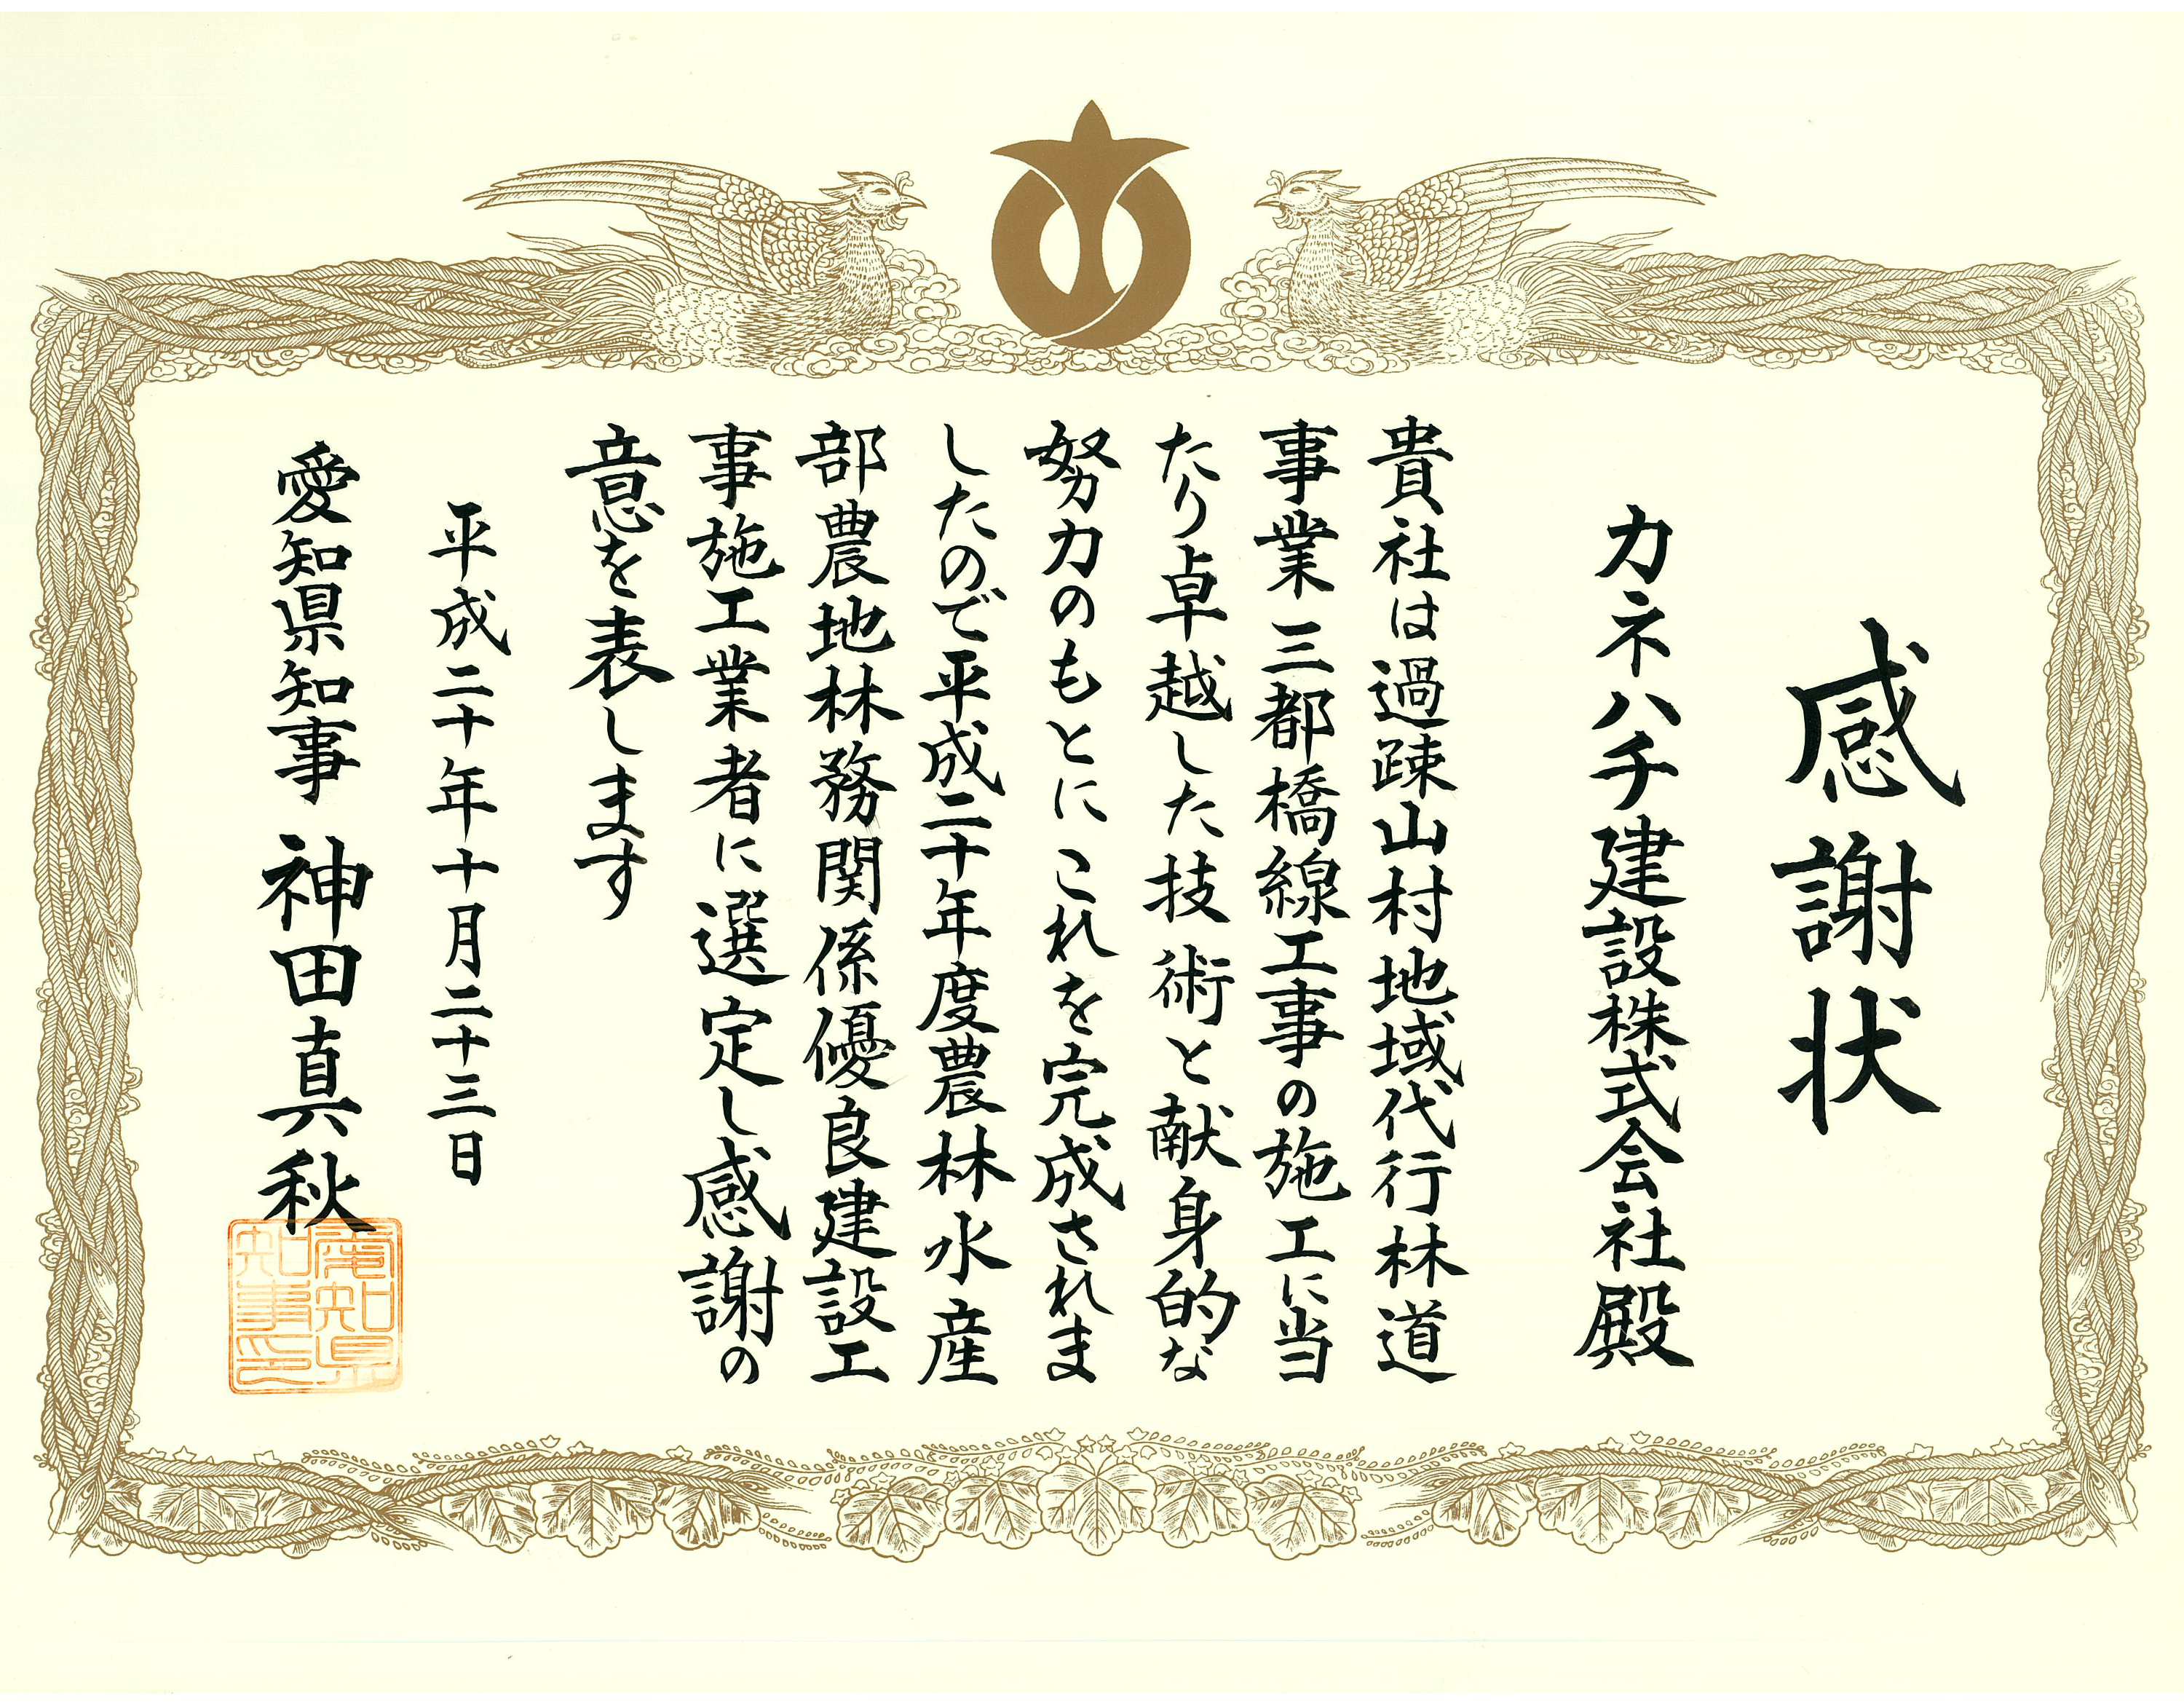 感謝状
カネハチ建設株式会社殿
貴社は過疎山村地域代行林道
事業三都橋線工事の施工に当
たり卓越した技術と献身的な
努力のもとにこれを完成されま
したので平成二十年度農林水産
部農地林務関係優良建設工
事施工業者に選定し感謝の
意を表します
平成二十年十月二十三日
愛知県知事 神田真秋
愛知県
知事印